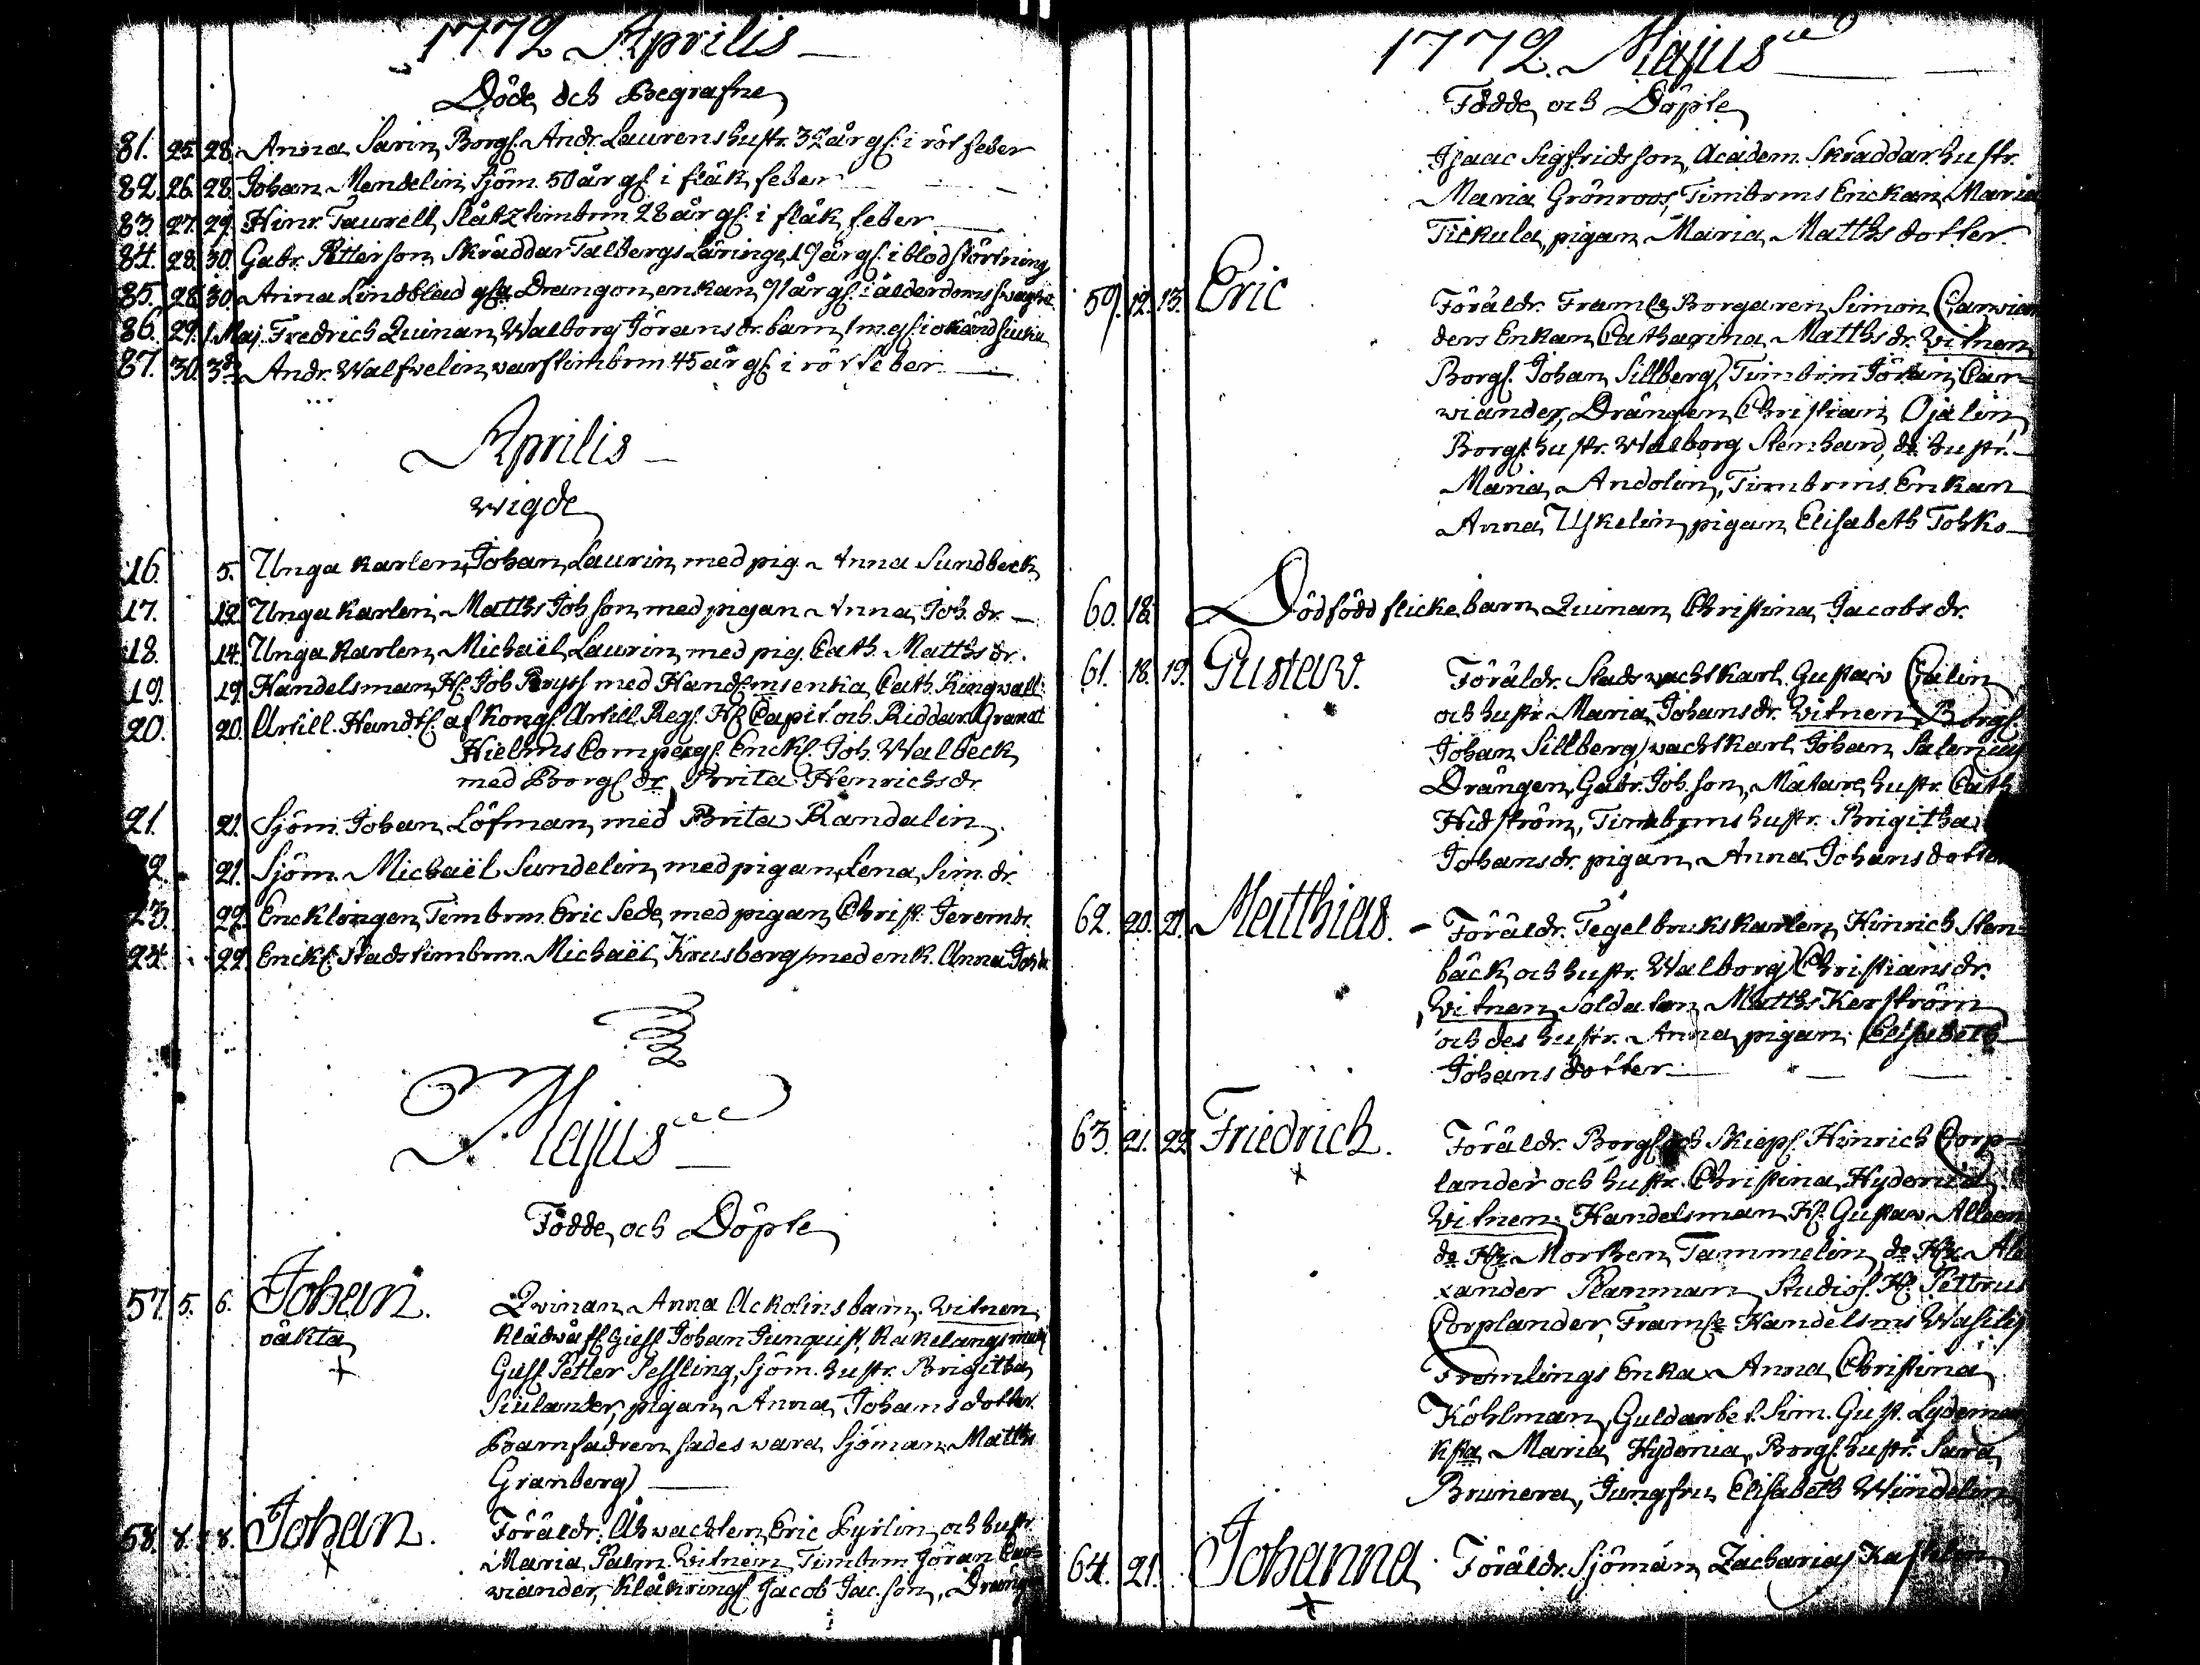 1772 Aprilis
Döde och Begrafne
81. 25. 28. Anna Sarin, Borgs. Andr. Laurens hustr. 32 år gl: i röt feber
82. 26. 28. Johan Mendelin, Sjöm. 50 år gl. i fläk feber
83. 27. 29. Hinr. Taurell, Slåttz timbrm 28 år gl: i fläk feber
84. 28. 30. Gabr. Petterson, Skräddar Talbergs Läringe, 17 år gl: i blodstörtning
85. 28. 30. Anna Lindblad gla Drangon enkan, 71 år gl: i ålderdoms swaghet
86. 29. 1 Maj. Fredrich Quinan, Walborg Jörans dr. barn, 1 m. gl: i okänd siuka
87. 30. 3. Andr. Walfwelin, warfstimbrm 45 år gl: i röt feber
Aprilis
wigde
16. 5. Unga karlen, Johan Laurin, med pig. Anna Sundbeck
17. 12. Unga Karlen, Matths Joh.son, med pigan Anna, Joh. dr.
18. 14. Unga Karlen, Michaël Laurin, med pig. Cath. Matths dr.
19. 19. Handelsman, H. Joh. Pryss med Handl.ms enka, Cath. Ringwall.
20. 20. Artill. Handtl. af Kongl. Artill. Reg. H. Capit. och Riddar. Granat
Hielms Comp. Enckl. Joh. Walbeck
med Borgs dr Brita Henrichs dr.
21. 21. Sjöm. Johan Löfman, med Brita Randalin
22. 21. Sjöm. Michaël Sundelin, med pigan, Lena, Sim. dr.
23. 22. Encklingen Timbrm. Eric Sede, med pigan, Christ. Jerem dr.
24. 22. Enckl. Stads timbrm. Michaël Krusberg, med enk. Anna Joh dr.
Majus
Födde, och Döpte
57. 5. 6. Johan. Qvinan Anna Ackolins barn. Witnen
oäkta Johan Junquist,
+ Petter Jessling, Sjöm. hustr. Brigitha
Siulander, pigan Anna Johans dotter.
Barnfadren sades wara Sjöman Matths
Granberg
58. 8. 8. Johan. Föräldr. Åhwachten, Eric Pyrlin, och hustr.
+ Maria Palm. Witnen Timbrm. Jöran Car=
wiander, Jacob Jac.son, Dräng
1772. Majus
Födde och Döpte
Isaac Sigfridsson, Academ. Skräddar hustr.
Maria Grönroos, Timbrms Enckan, Maria
Tickula, pigan Maria Matths dotter.
59. 12. 13. Eric Föräldr. Framl. Borgaren, Simon Carwian
ders Enkan, Catharina Matths dr. Witnen
Borgs. Johan Sillberg, Timbrm Jöran Car=
wiander, Drängen, Christian Ojalin,
Borgs. hustr. Walborg Stenhard, do hustr.
Maria Andolin, Timbrms. Enkan
Anna Uskelin, pigan, Elisabeth Tohko
60. 18. Dödfödd flicke barn, Quinan, Christina, Jacobs dr.
61. 18. 19. Gustaw. Föräldr. Stads wachtkarl. Gustaw Calin
och hustr. Maria, Johans dr. Witnen Borgs.
Johan Sillberg, wachtkarl Johan Salenius
Drängen, Gabr. Joh. son, Mätare hustr. Cath
Hidström, Timbrms hustr. Brigitha
Johans dr. pigan, Anna Johans dotter
62. 20. 21. Matthias. Föräldr. Tegelbrukskarlen, Hinrich Sten=
bäck, och hustr. Walborg Christians dr.
Witnen, Soldaten, Matths Kerström
och des hustr. Anna, pigan, Elisabeth
Johans dotter
63. 21. 22. Friedrich. Föräldr. Borgs och Skiep. Hinrich Corp=
+ lander och hustr. Christina Hydenia
Witnen: Handelsman, H. Gustav Alleen
do Hr. Morthen Tammelin, do Hr. Ale
xander Planman, Studios. H. Pettrus
Corplander, Framl. Handelsms Wasilij
Fremlings Enka Anna Christina
Köhlman, Guldarbet. Sim. Gust. Lydeman
Maria Hydenia, Borgs hustr. Sara
Brunera, Jungfru Elisabeth Windelin
64. 21. Johanna. Föräldr. Sjöman, Zacharias Kastelin
+